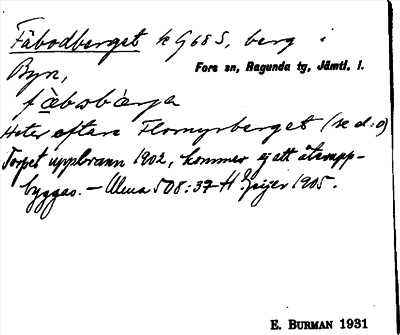 Fäbodberget k G 68 S, berg i
Byn,
Fors sn, Ragunda tg, Jämtl. l.
fäbobärja
Heter oftare Flomyrberget (se d:o)
Torpet uppbrann 1902, kommer ej att återupp-
byggas. – Ulma 508:37 H Geijer 1905.
E. BURMAN 1931